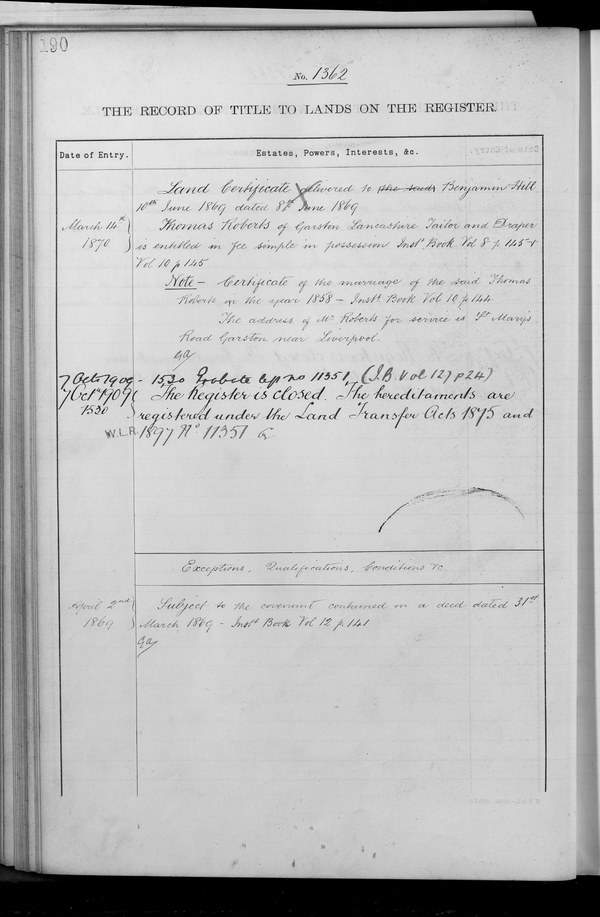 190
No. 1362
THE RECORD OF TITLE TO LANDS ON THE REGISTER.
Date of Entry.
Estates, Powers, Interests, &c.
Land Certificate delivered to the said Benjamin Hill
10th June 1869 dated 8th June 1869
March 14th
1870
Thomas Roberts of Garston Lancashire Tailor and Draper
is entitled in fee simple in possession Inst. Book Vol 8 p 145 &
Vol 10 p 145
Note - Certificate of the marriage of the said Thomas
Roberts in the year 1858 - Inst. Book Vol 10 p 144
The address of Mr Roberts for service is St Mary's
Road Garston near Liverpool.
7 Oct 1909 - 1530 Probate 11351 (I.B. Vol 127 p 24)
7 Oct 1909
1530
The Register is closed. The hereditaments are
registered under the Land Transfer Acts 1875 and
W.L.R.
1897 No 11351
Exceptions, Qualifications, Conditions &c
April 2nd
1869
Subject to the covenant contained in a deed dated 31st
March 1869 - Inst. Book Vol 12 p 141